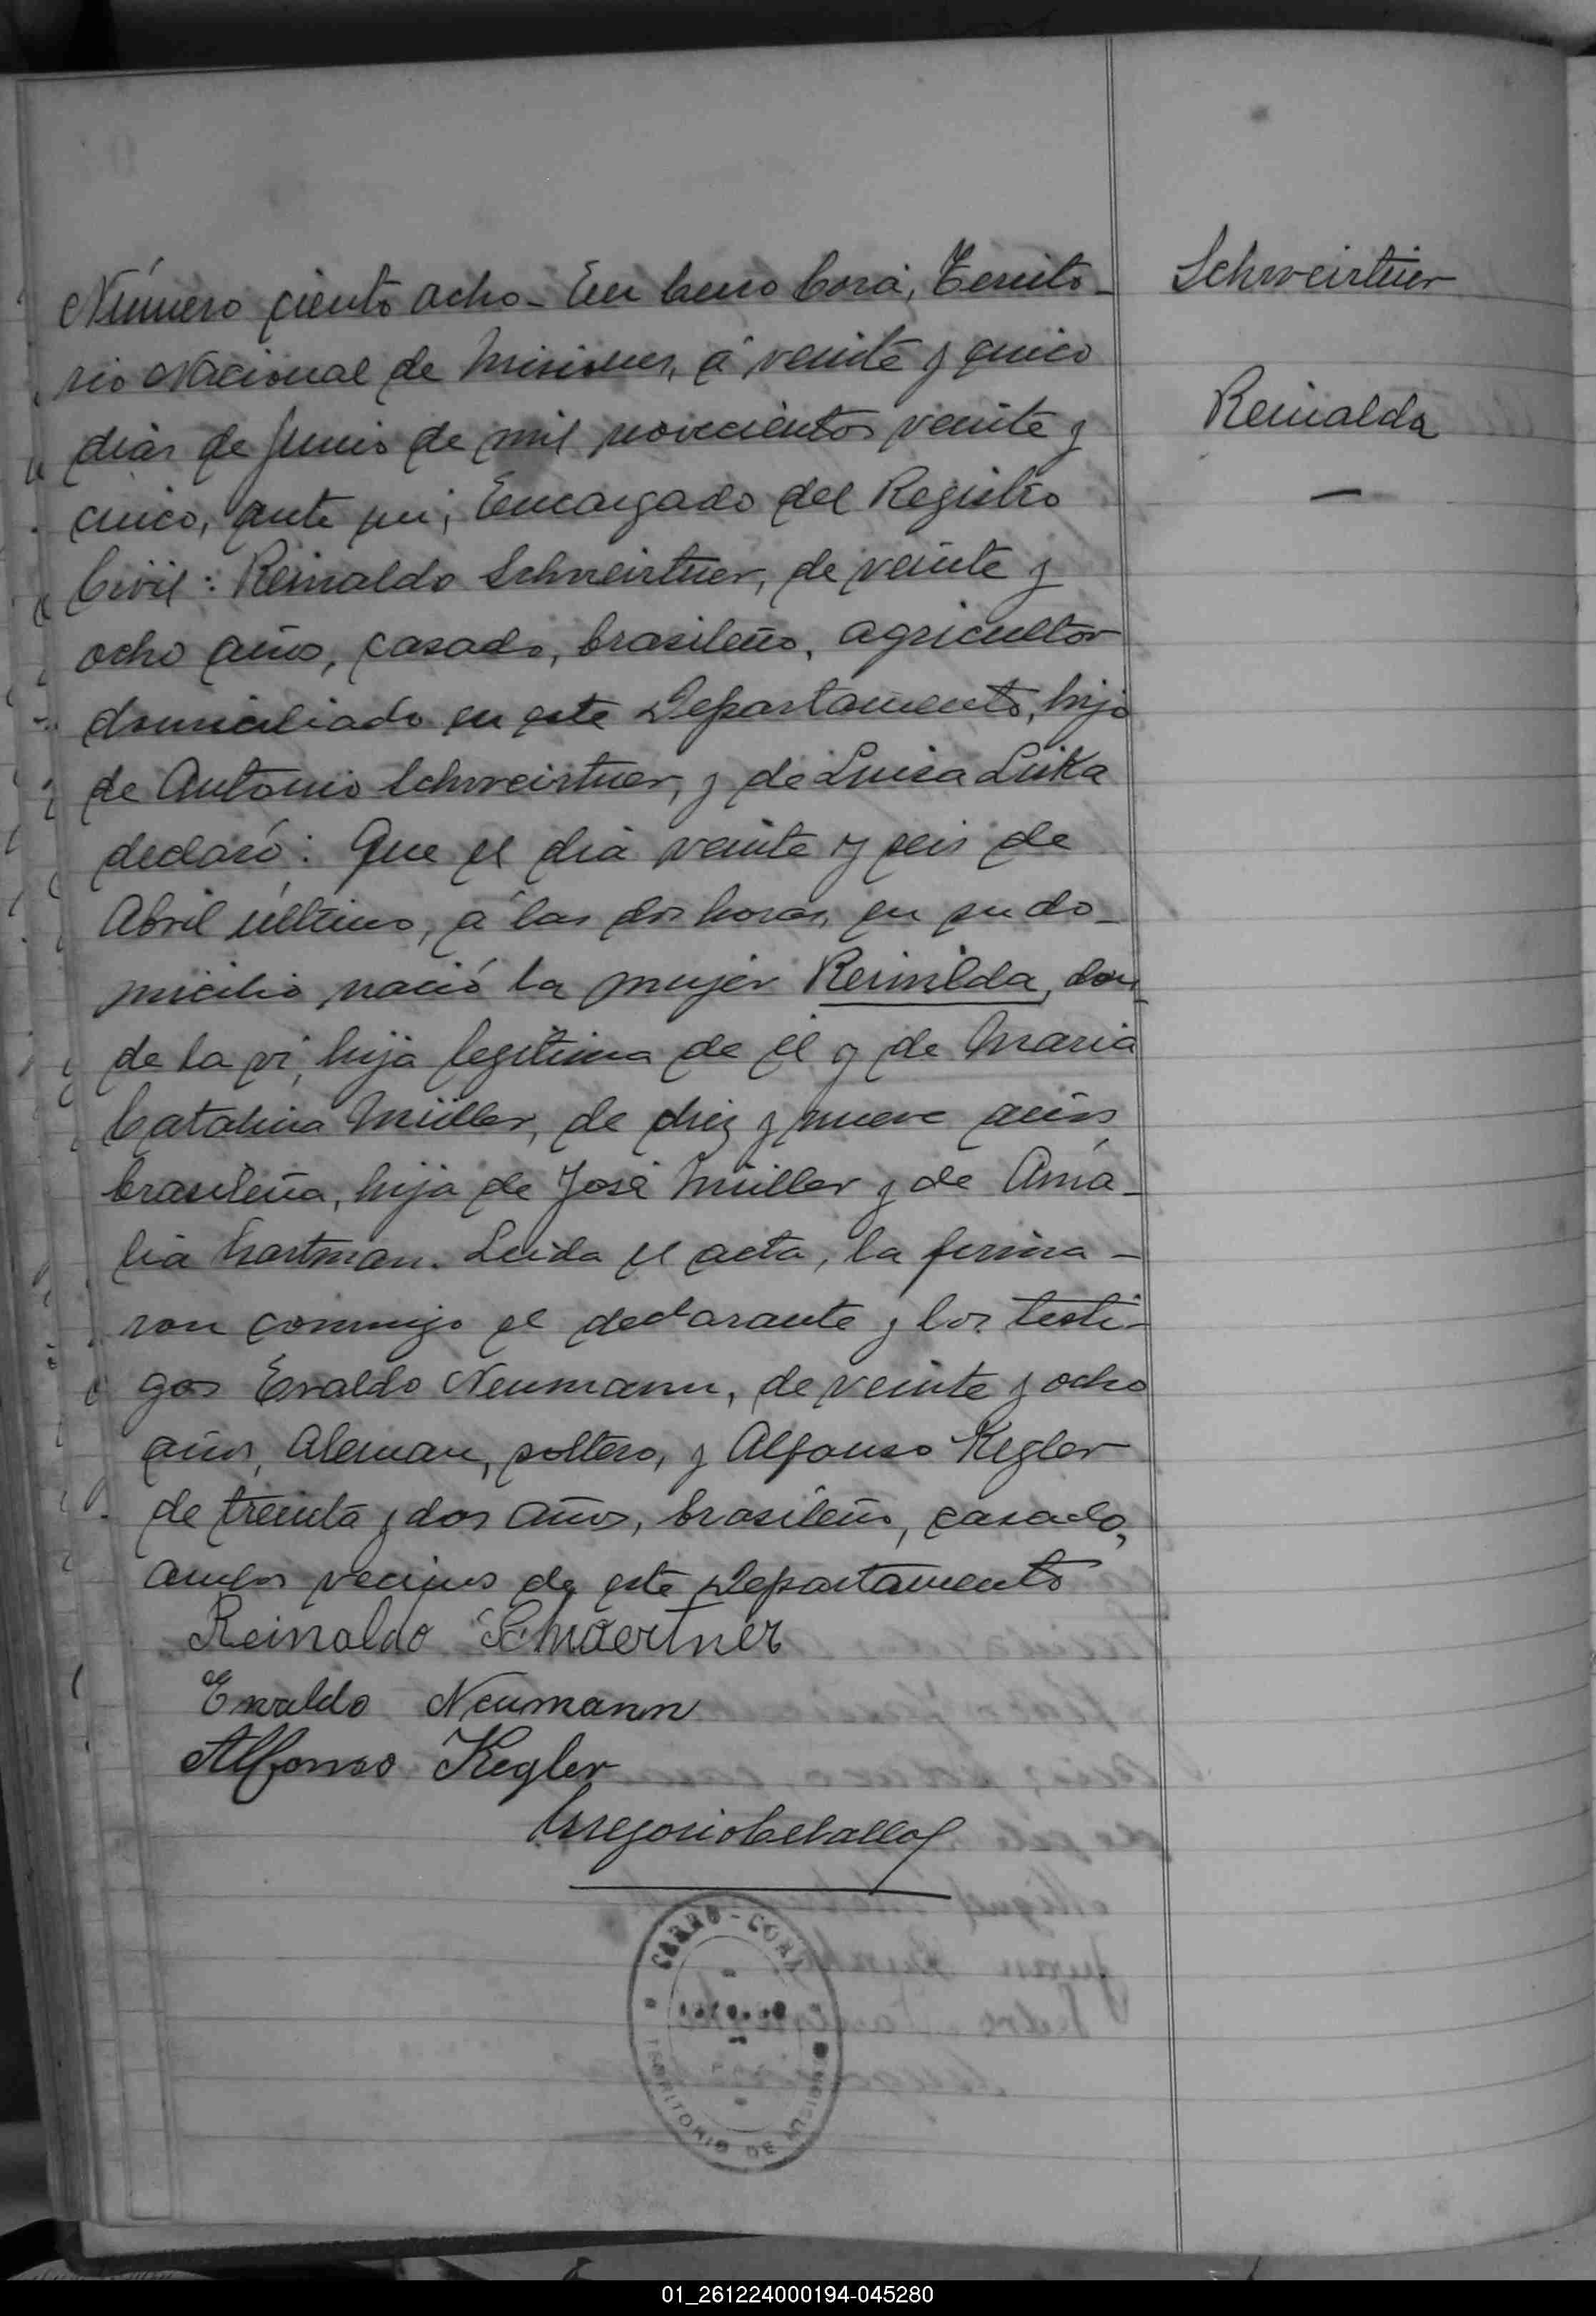 Schweirtner
Reinalda
Número ciento ocho - En Cerro Corá, Territo-
rio Nacional de Misiones, á veinte y cinco
dias de Junio de mil novecientos veinte y
cinco, ante mi, Encargado del Registro
Civil: Reinaldo Schweirtner, de veinte y
ocho años, casado, brasileño, agricultor
domiciliado en este Departamento, hijo
de Antonio Schweirtner, y de Luisa Liska
declaró: Que el dia veinte y seis de
Abril último, á las dos horas, en su do-
micilio nació la mujer Reinilda, don-
de la vi, hija legitima de él y de Maria
Catalina Müller, de diez y nueve años
brasileña, hija de José Müller y de Ama-
lia Hartman. Leida el acta, la firma-
ron conmigo el declarante y los testi-
gos Evaldo Neumann, de veinte y ocho
años, Aleman, soltero, y Alfonso Kegler
de treinta y dos años, brasileño, casado,
ambos vecinos de este Departamento
Reinaldo Schwertner
Evaldo Neumann
Alfonso Kegler
Gregorio Ceballos
CERRO-CORA
TERRITORIO DE MISIONES
01_261224000194-045280